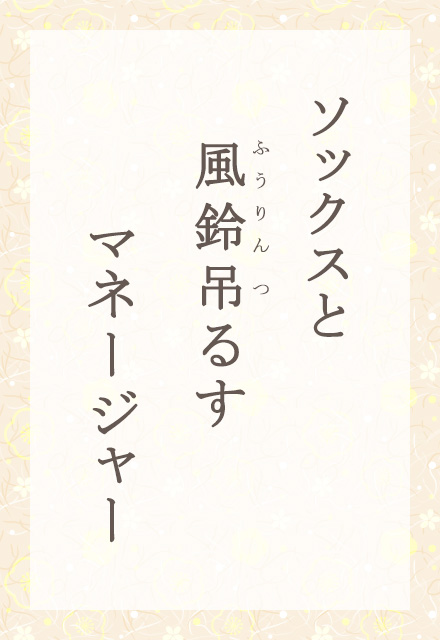 ソックスと
風鈴吊るす
ふうりんつ
マネージャー